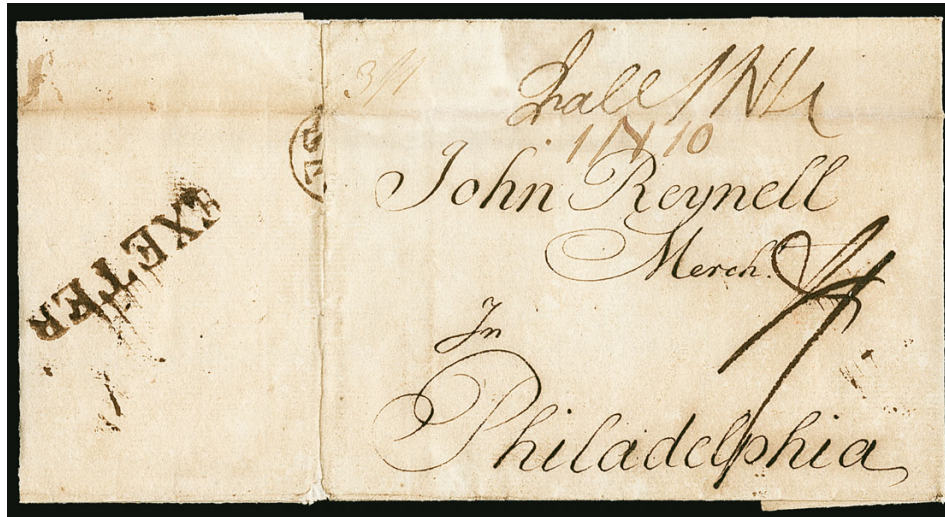 EXETER
DE
3/1
1N10
John Reynell
Merch.t
In
Philadelphia